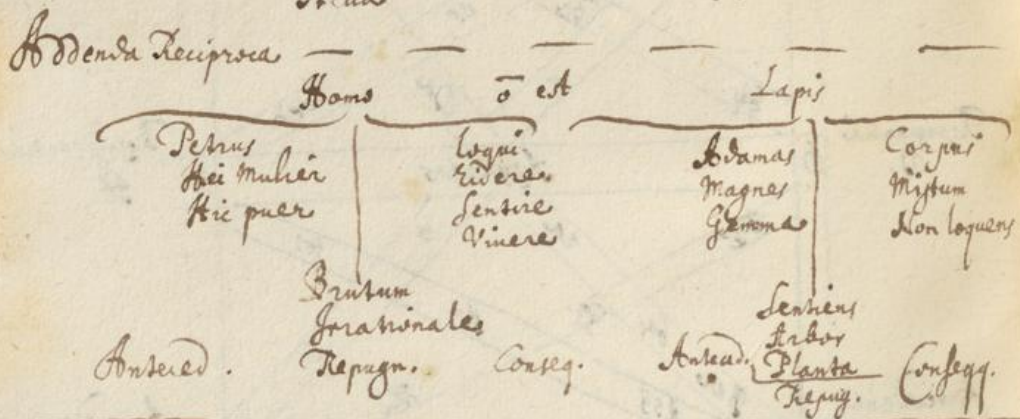 Addenda Reciproca
Homo ō est Lapis
Petrus
Hec Mulier
Hic puer
loqui
ridere
Sentire
Vivere
Adamas
Magnes
Gemma
Corpus
Mistum
Non loquens
Brutum
Irrationale
Repugn.
Sentiens
Arbor
Planta
Repug.
Anteced.
Conseq.
Anteced.
Conseqq.